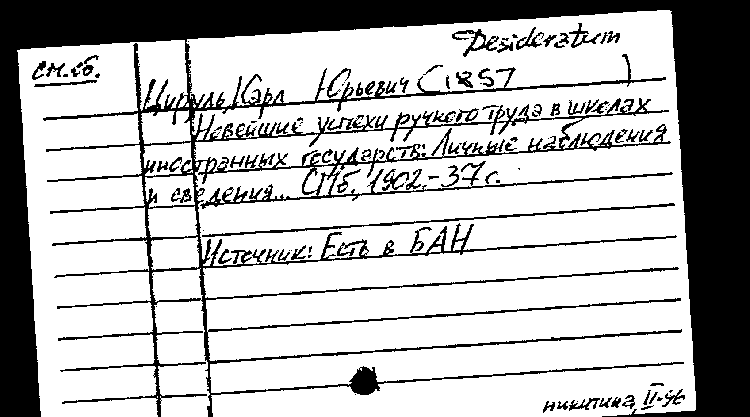 Desideratum
см. сб.
Цируль, Карл Юрьевич (1857 )
Новейшие успехи ручного труда в школах
иностранных государств: Личные наблюдения
и сведения... СПб., 1902.-37 с.
Источник: Есть в БАН
никитина, II-96